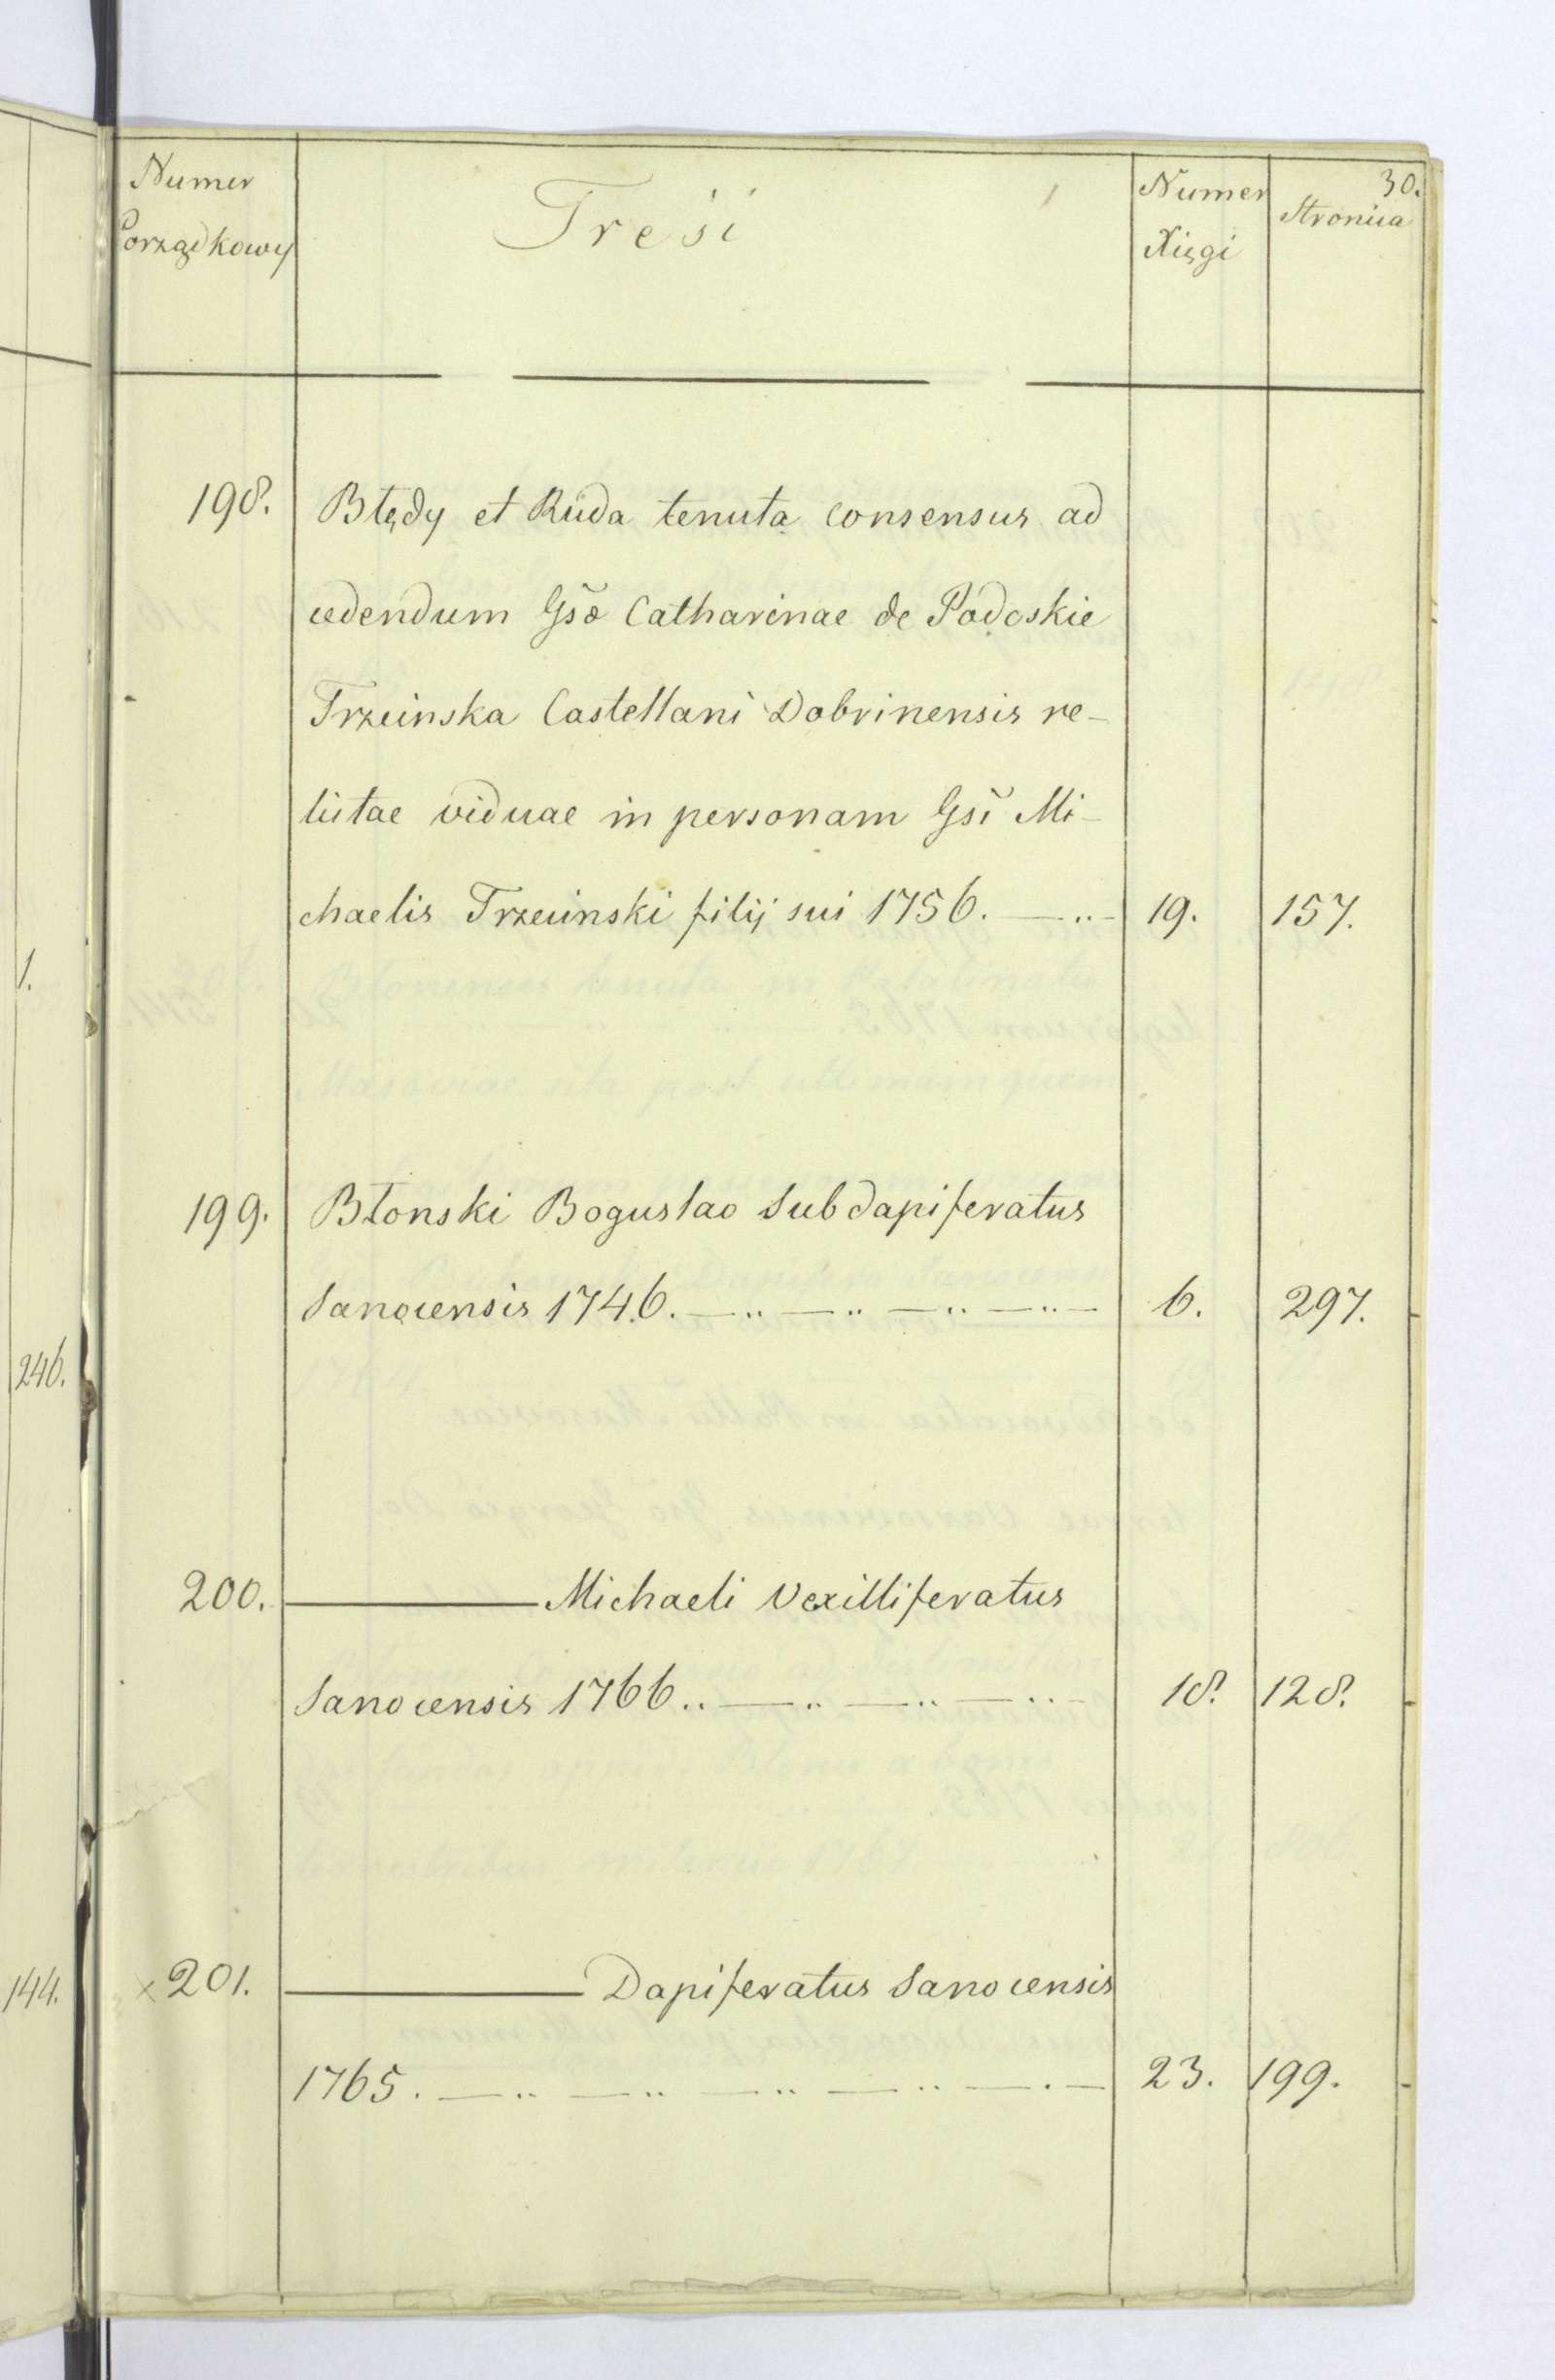 30.
Numer Porządkowy
Treści
Numer Xięgi
Stronica
198. Błędy et Ruda tenuta consensus ad
cedendum Gsae Catharinae de Podoskie
Trzcinska Castellani Dobrinensis re-
lictae viduae in personam Gsi Mi-
chaelis Trzcinski filij sui 1756. 19. 157.
199. Błonski Boguslao Subdapiferatus
Sanocensis 1746. 6. 297.
200. ——— Michaeli Vexilliferatus
Sanocensis 1766. 18. 128.
×201. ——— Dapiferatus Sanocensis
1765. 23. 199.
1.
246.
144.